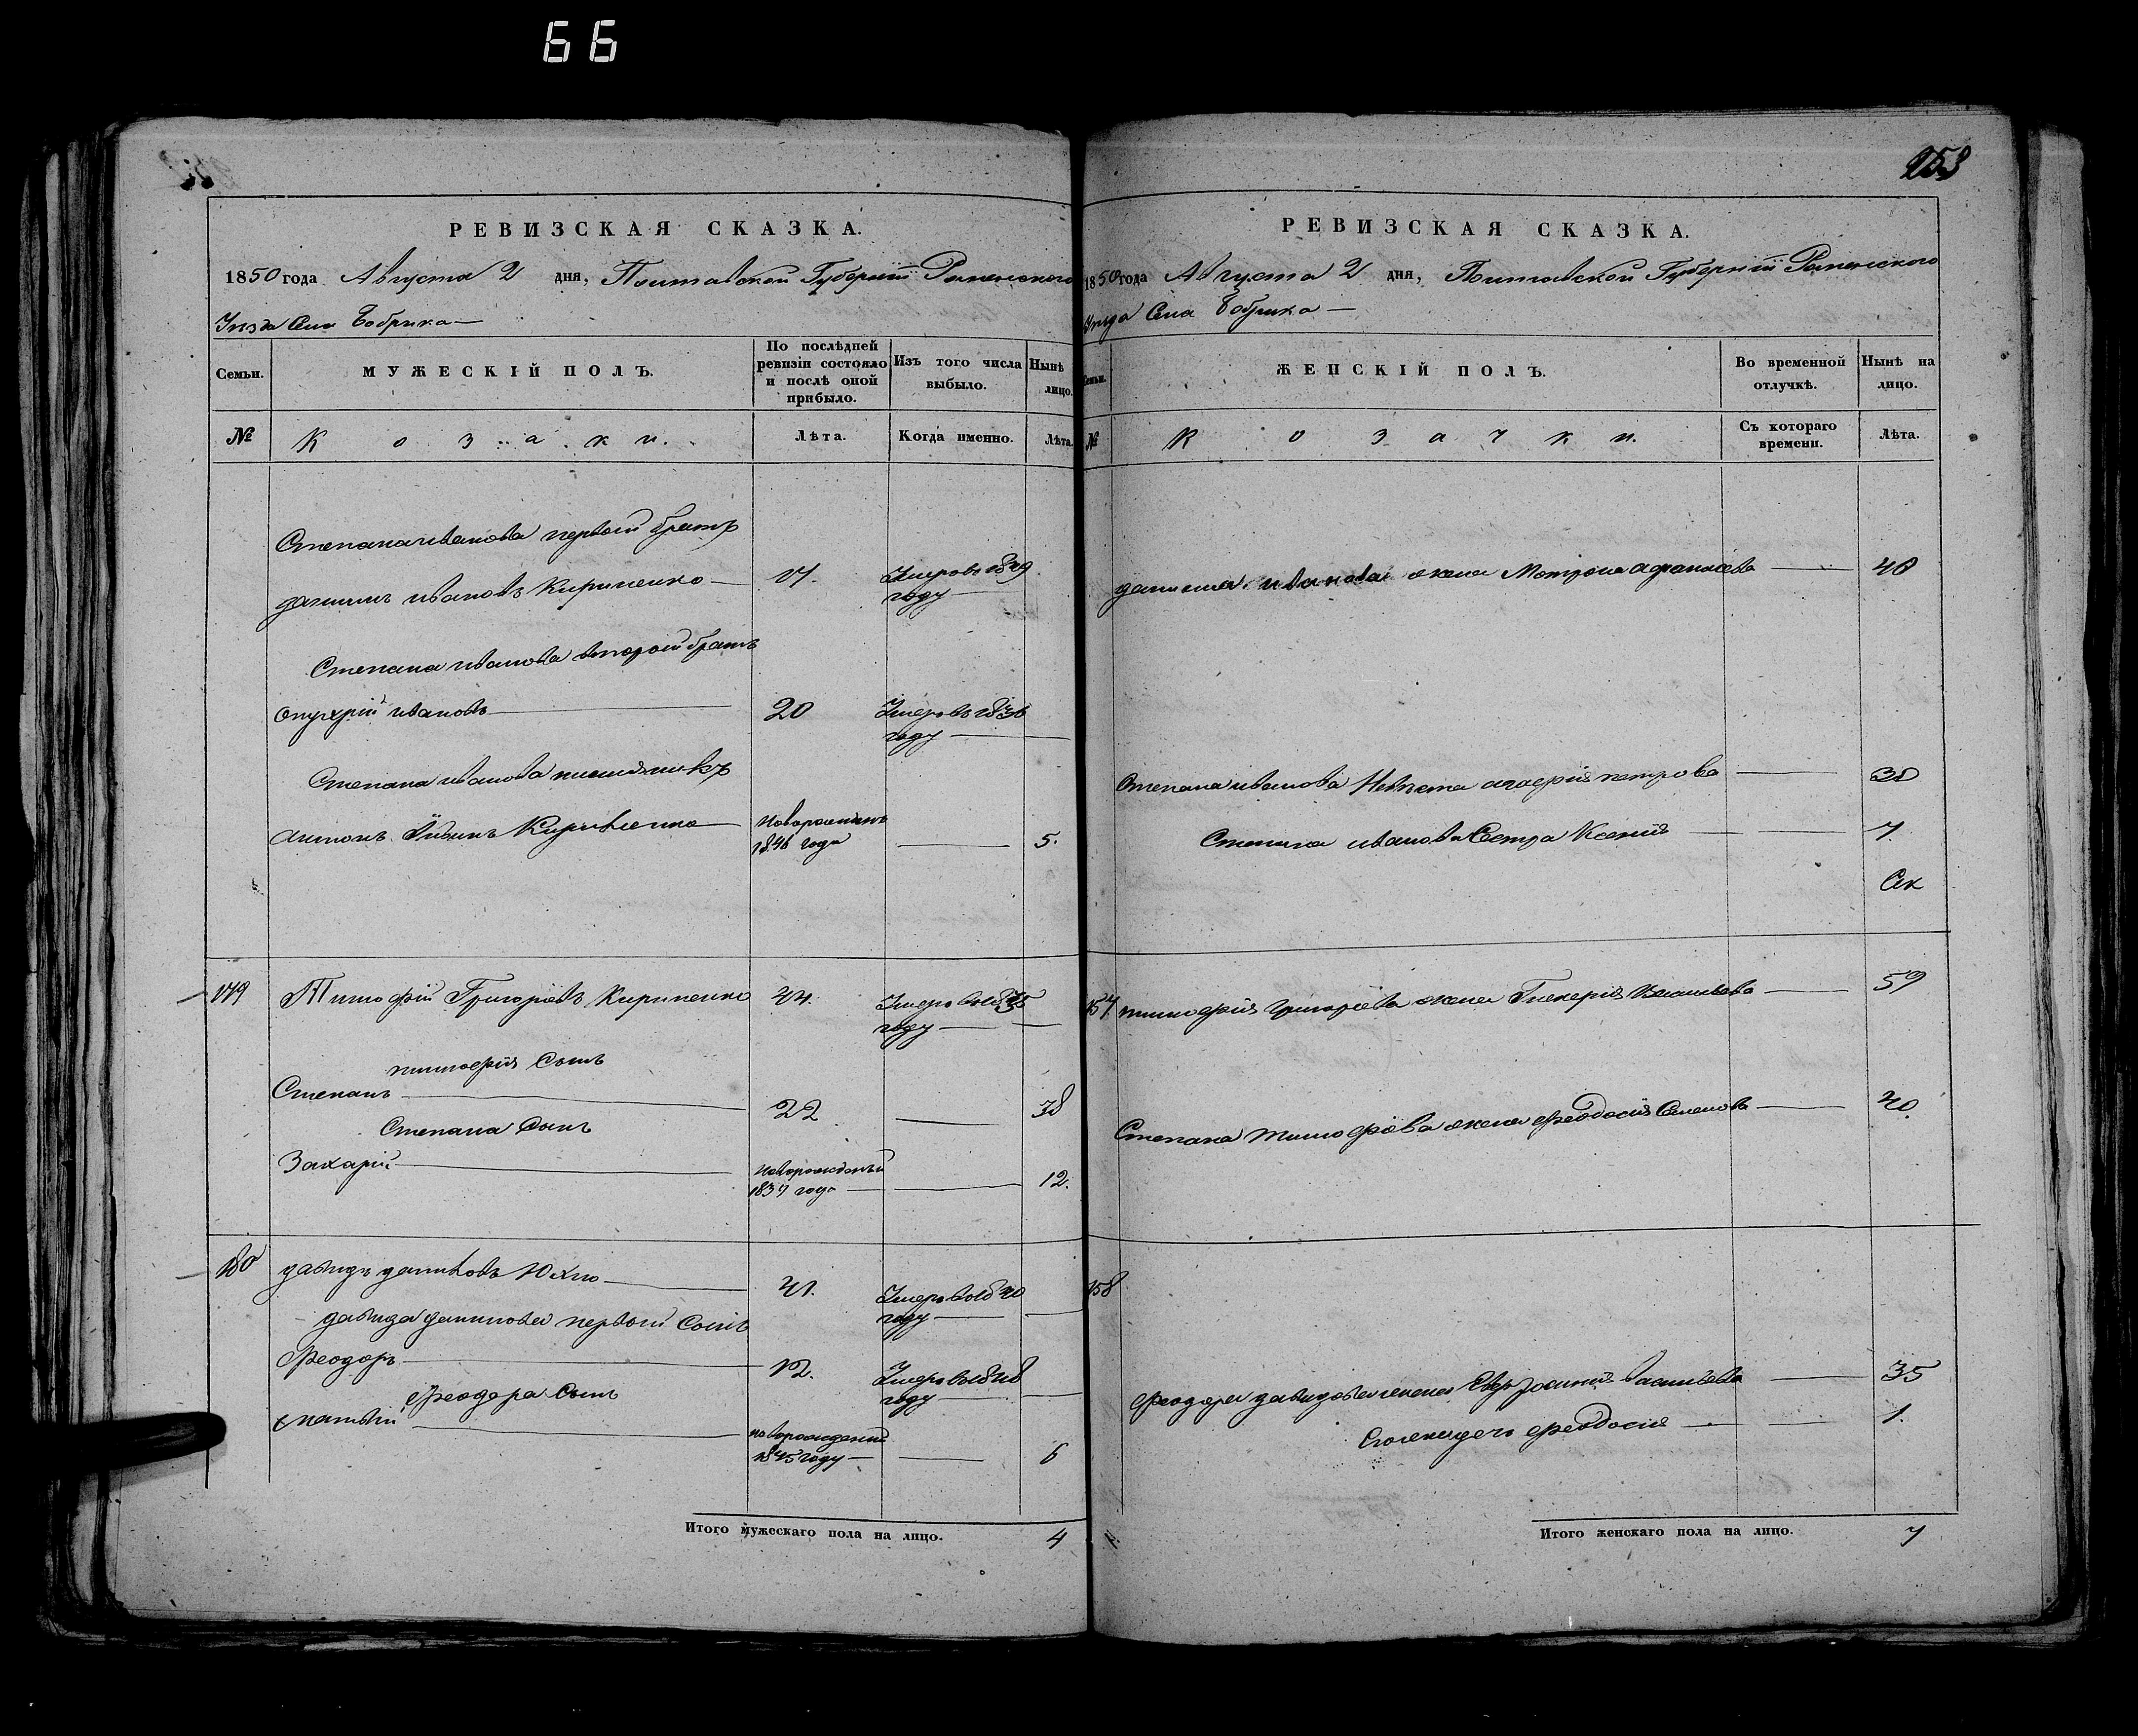 66
253
РЕВИЗСКАЯ СКАЗКА.
1850 года Августа 2 дня, Полтавской Губерніи Роменского
Уезда Села Бобрика —
Семьи.
МУЖЕСКІЙ ПОЛЪ.
По послѣдней ревизіи состояло и послѣ оной прибыло.
Изъ того числа выбыло.
Нынѣ лицо.
№
Козаки.
Лѣта.
Когда именно.
Лѣта.
Степана иванова первой братъ
данилъ ивановъ Кириченко — 17. Умеръ въ 1849
году —
Степана иванова второй братъ
Онуфрій ивановъ — 20 Умеръ въ 1836
году —
Степана иванова племяникъ
антонъ Кириченко новорожденъ
1846 года — 5.
179 Тимофій Григоріевъ Кириченко 44. Умеръ въ
году —
тимофія Сынъ
Степанъ — 22 — 38
Степана Сынъ
Захарій — новорожденый
1837 года — 12.
180 давидъ даниловъ Юхно — 41. Умеръ в 1840
году —
давида данилова первый Сынъ
Феодоръ — 12. Умеръ в 1848
году —
Феодора Сынъ
новорожденый
1845 году — 6
Итого мужескаго пола на лицо. 4
РЕВИЗСКАЯ СКАЗКА.
1850 года Августа 2 дня, Полтавской Губерніи Роменского
Уезда Села Бобрика —
Семьи.
ЖЕНСКІЙ ПОЛЪ.
Во временной отлучкѣ.
Нынѣ на лицо.
№
Козачки.
Съ котораго времени.
Лѣта.
данила иванова жена Мотрона афанасева — 48
Степана иванова Невѣста агафія петрова — 38
Степана иванова Сестра Ксенія — 7.
157 тимофія григоріева жена Гликерія — 59
Степана тимофіева жена феодосія Семенова — 40.
158
феодора давидова жена васильева — 35
феодосія — 1.
Итого женскаго пола на лицо. 7